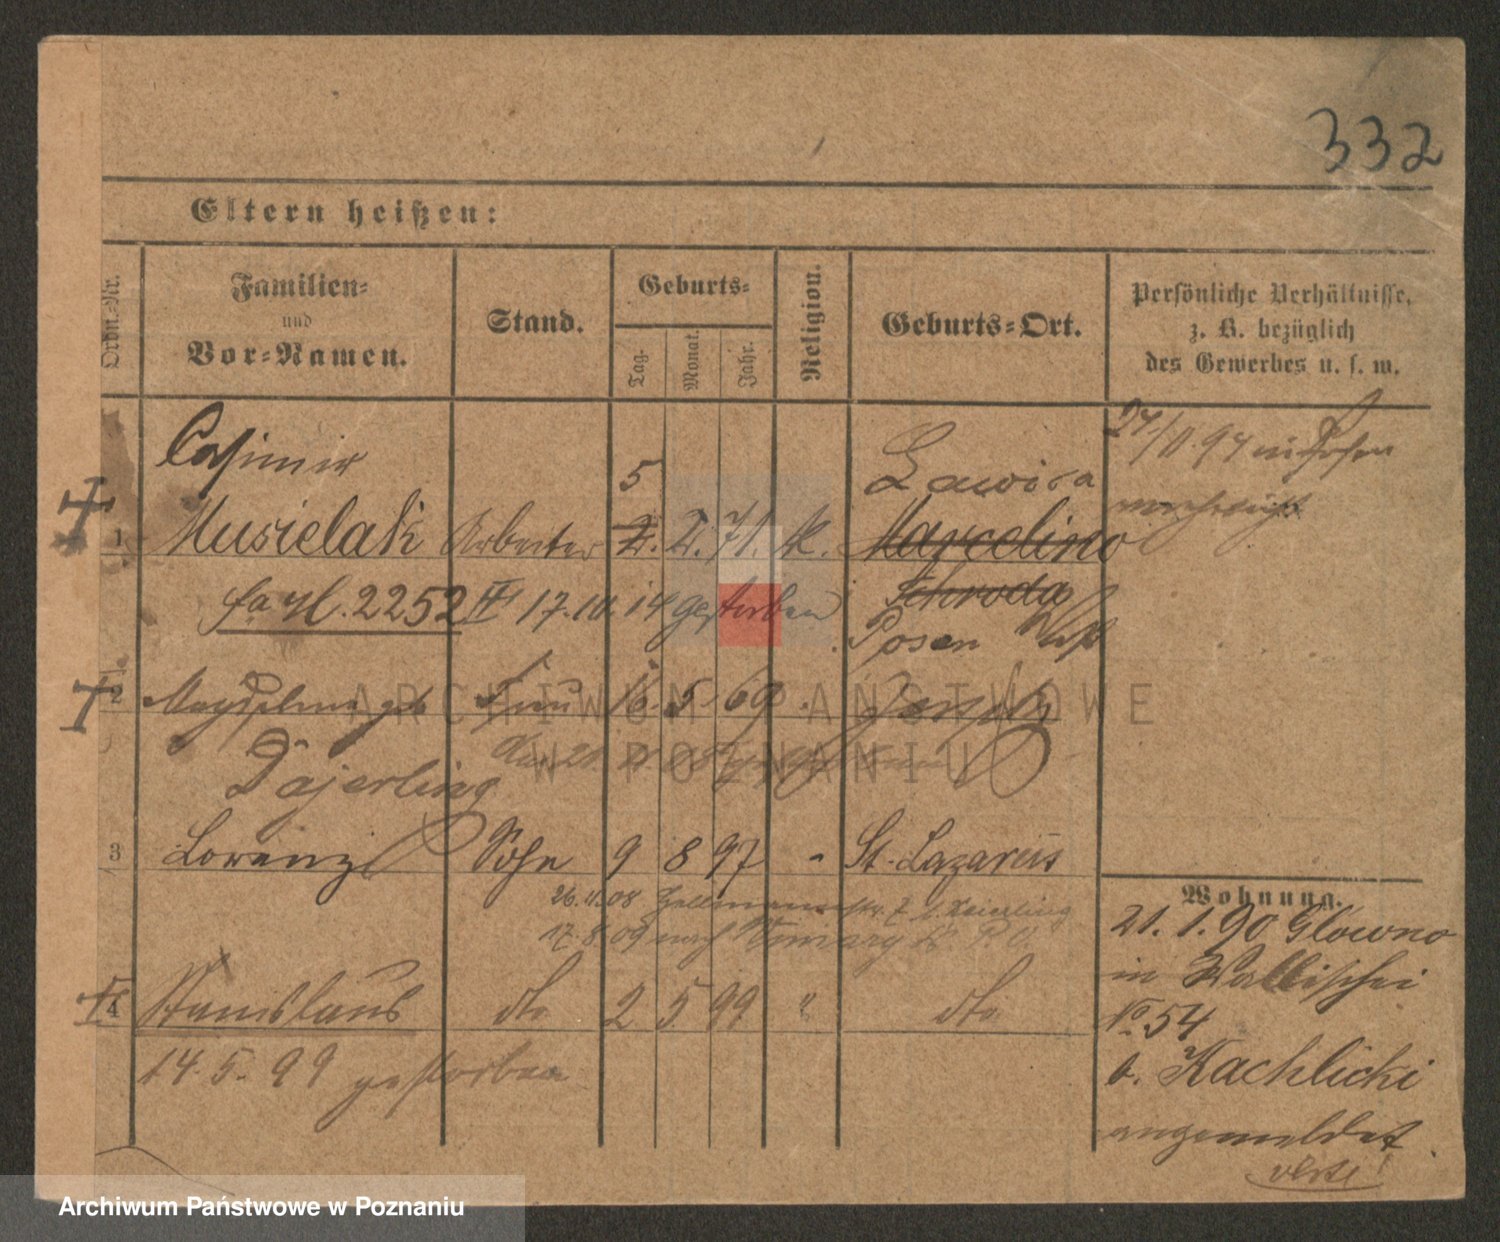 332
Eltern heißen:
Ordn.-Nr.
Familien-
und
Vor-Namen.
Stand.
Geburts-
Tag.
Monat.
Jahr.
Religion.
Geburts-Ort.
Persönliche Verhältnisse,
z. B. bezüglich
des Gewerbes u. s. w.
Casimir
5
Lawica
27/11.97 in Posen
1 Musielak Arbeiter 2. 2. 71. k. Marcelino
2252 17.10.14 gestorben
Schroda
Posen West
2 Magdalena geb Frau 16. 5. 69
Dajerling
3 Lorenz Sohn 9 8 97 " St. Lazarus
26.11.08
17.8.09 nach
Wohnung.
21.1.90 Glowno
in Wallischei
No. 54
b. Kachlicki
angemeldet.
verte!
4 Stanislaus dto 2 5 99 " dto
14.5.99 gestorben
ARCHIWUM PAŃSTWOWE
W POZNANIU
Archiwum Państwowe w Poznaniu